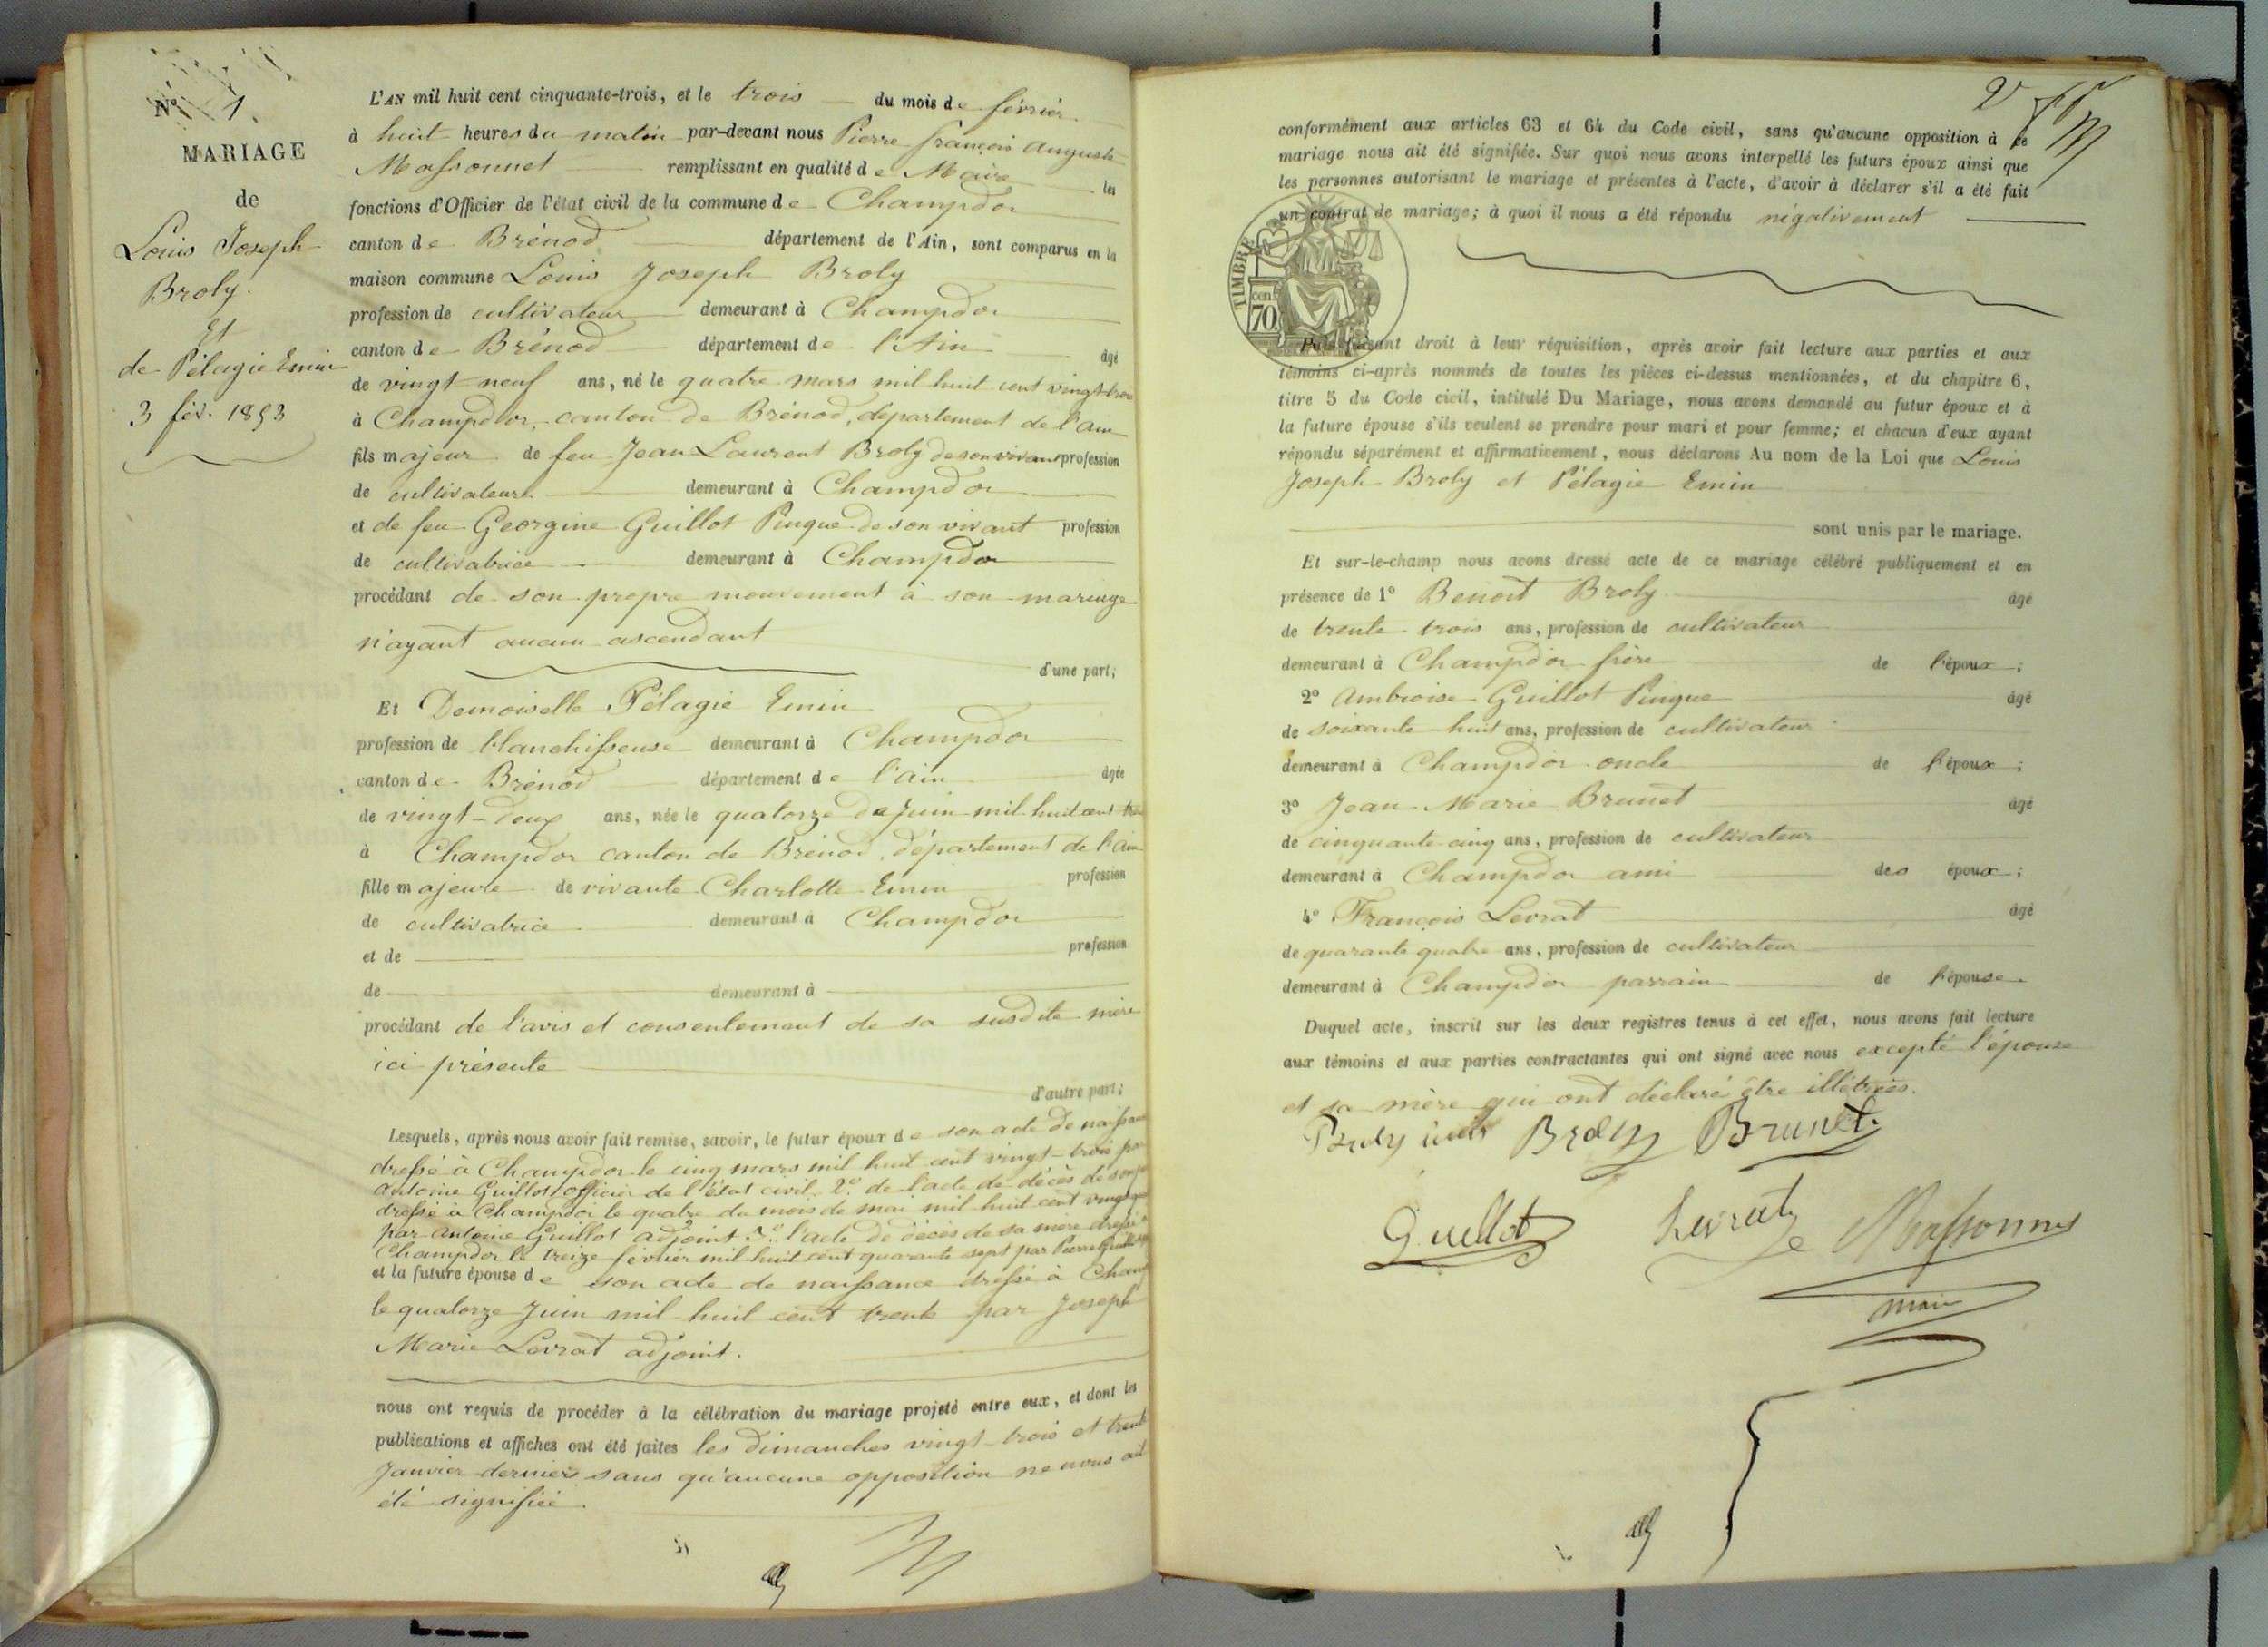 N.° 1
MARIAGE
de
Louis Joseph
Broly.
et
de Pélagie Emin
3 fév. 1853
L'AN mil huit cent cinquante-trois, et le trois du mois de février
à huit heures du matin par-devant nous Pierre françois Auguste
Massonnet remplissant en qualité de Maire les
fonctions d'Officier de l'état civil de la commune de Champdor
canton de Brénod département de l'Ain, sont comparus en la
maison commune Louis Joseph Broly
profession de cultivateur demeurant à Champdor
canton de Brénod département de l'Ain âgé
de vingt neuf ans, né le quatre mars mil huit cent vingt-trois
à Champdor, canton de Brénod, département de l'ain
fils majeur de feu Jean Laurent Broly de son vivant profession
de cultivateur demeurant à Champdor
et de feu Georgine Guillot Pingue de son vivant profession
de cultivatrice demeurant à Champdor
procédant de son propre mouvement à son mariage
n'ayant aucun ascendant
d'une part;
Et Demoiselle Pélagie Emin
profession de blanchisseuse demeurant à Champdor
canton de Brénod département de l'ain âgée
de vingt-deux ans, née le quatorze de juin mil huit cent trente
à Champdor canton de Brénod, département de l'ain
fille majeure de vivante Charlotte Emin profession
de cultivatrice demeurant à Champdor
et de profession
de demeurant à
procédant de l'avis et consentement de sa susdite mère
ici présente
d'autre part;
Lesquels, après nous avoir fait remise, savoir, le futur époux de son acte de naissance
dressé à Champdor le cinq mars mil huit cent vingt-trois par
antoine Guillot officier de l'état civil 2° de l'acte de décès de son
dressé à Champdor le quatre du mois de mai mil huit cent
par antoine Guillot adjoint 3° l'acte de décès de sa mère dressé à
Champdor le treize février mil huit cent quarante sept par Pierre
et la future épouse de son acte de naissance dressé à Champ
le quatorze Juin mil huit cent trente par Joseph
Marie Levrat adjoint.
nous ont requis de procéder à la célébration du mariage projeté entre eux, et dont les
publications et affiches ont été faites les dimanches vingt-trois et trente
Janvier derniers sans qu'aucune opposition ne nous ait
été signifiée.
2
conformément aux articles 63 et 64 du Code civil, sans qu'aucune opposition à ce
mariage nous ait été signifiée. Sur quoi nous avons interpellé les futurs époux ainsi que
les personnes autorisant le mariage et présentes à l'acte, d'avoir à déclarer s'il a été fait
un contrat de mariage; à quoi il nous a été répondu négativement
TIMBRE
cen.
70
Puis faisant droit à leur réquisition, après avoir fait lecture aux parties et aux
témoins ci-après nommés de toutes les pièces ci-dessus mentionnées, et du chapitre 6,
titre 5 du Code civil, intitulé Du Mariage, nous avons demandé au futur époux et à
la future épouse s'ils veulent se prendre pour mari et pour femme; et chacun d'eux ayant
répondu séparément et affirmativement, nous déclarons Au nom de la Loi que Louis
Joseph Broly et Pélagie Emin
sont unis par le mariage.
Et sur-le-champ nous avons dressé acte de ce mariage célébré publiquement et en
présence de 1° Benoit Broly âgé
de trente trois ans, profession de cultivateur
demeurant à Champdor frère de l'époux;
2° Ambroise Guillot Pingue âgé
de soixante huit ans, profession de cultivateur
demeurant à Champdor oncle de l'époux;
3° Jean-Marie Brunet âgé
de cinquante-cinq ans, profession de cultivateur
demeurant à Champdor ami des époux;
4° François Levrat âgé
de quarante quatre ans, profession de cultivateur
demeurant à Champdor parrain de l'épouse
Duquel acte, inscrit sur les deux registres tenus à cet effet, nous avons fait lecture
aux témoins et aux parties contractantes qui ont signé avec nous excepté l'épouse
et sa mère qui ont déclaré être illétrées.
Broly Broly Brunet
Guillot Levrat Massonnet
maire